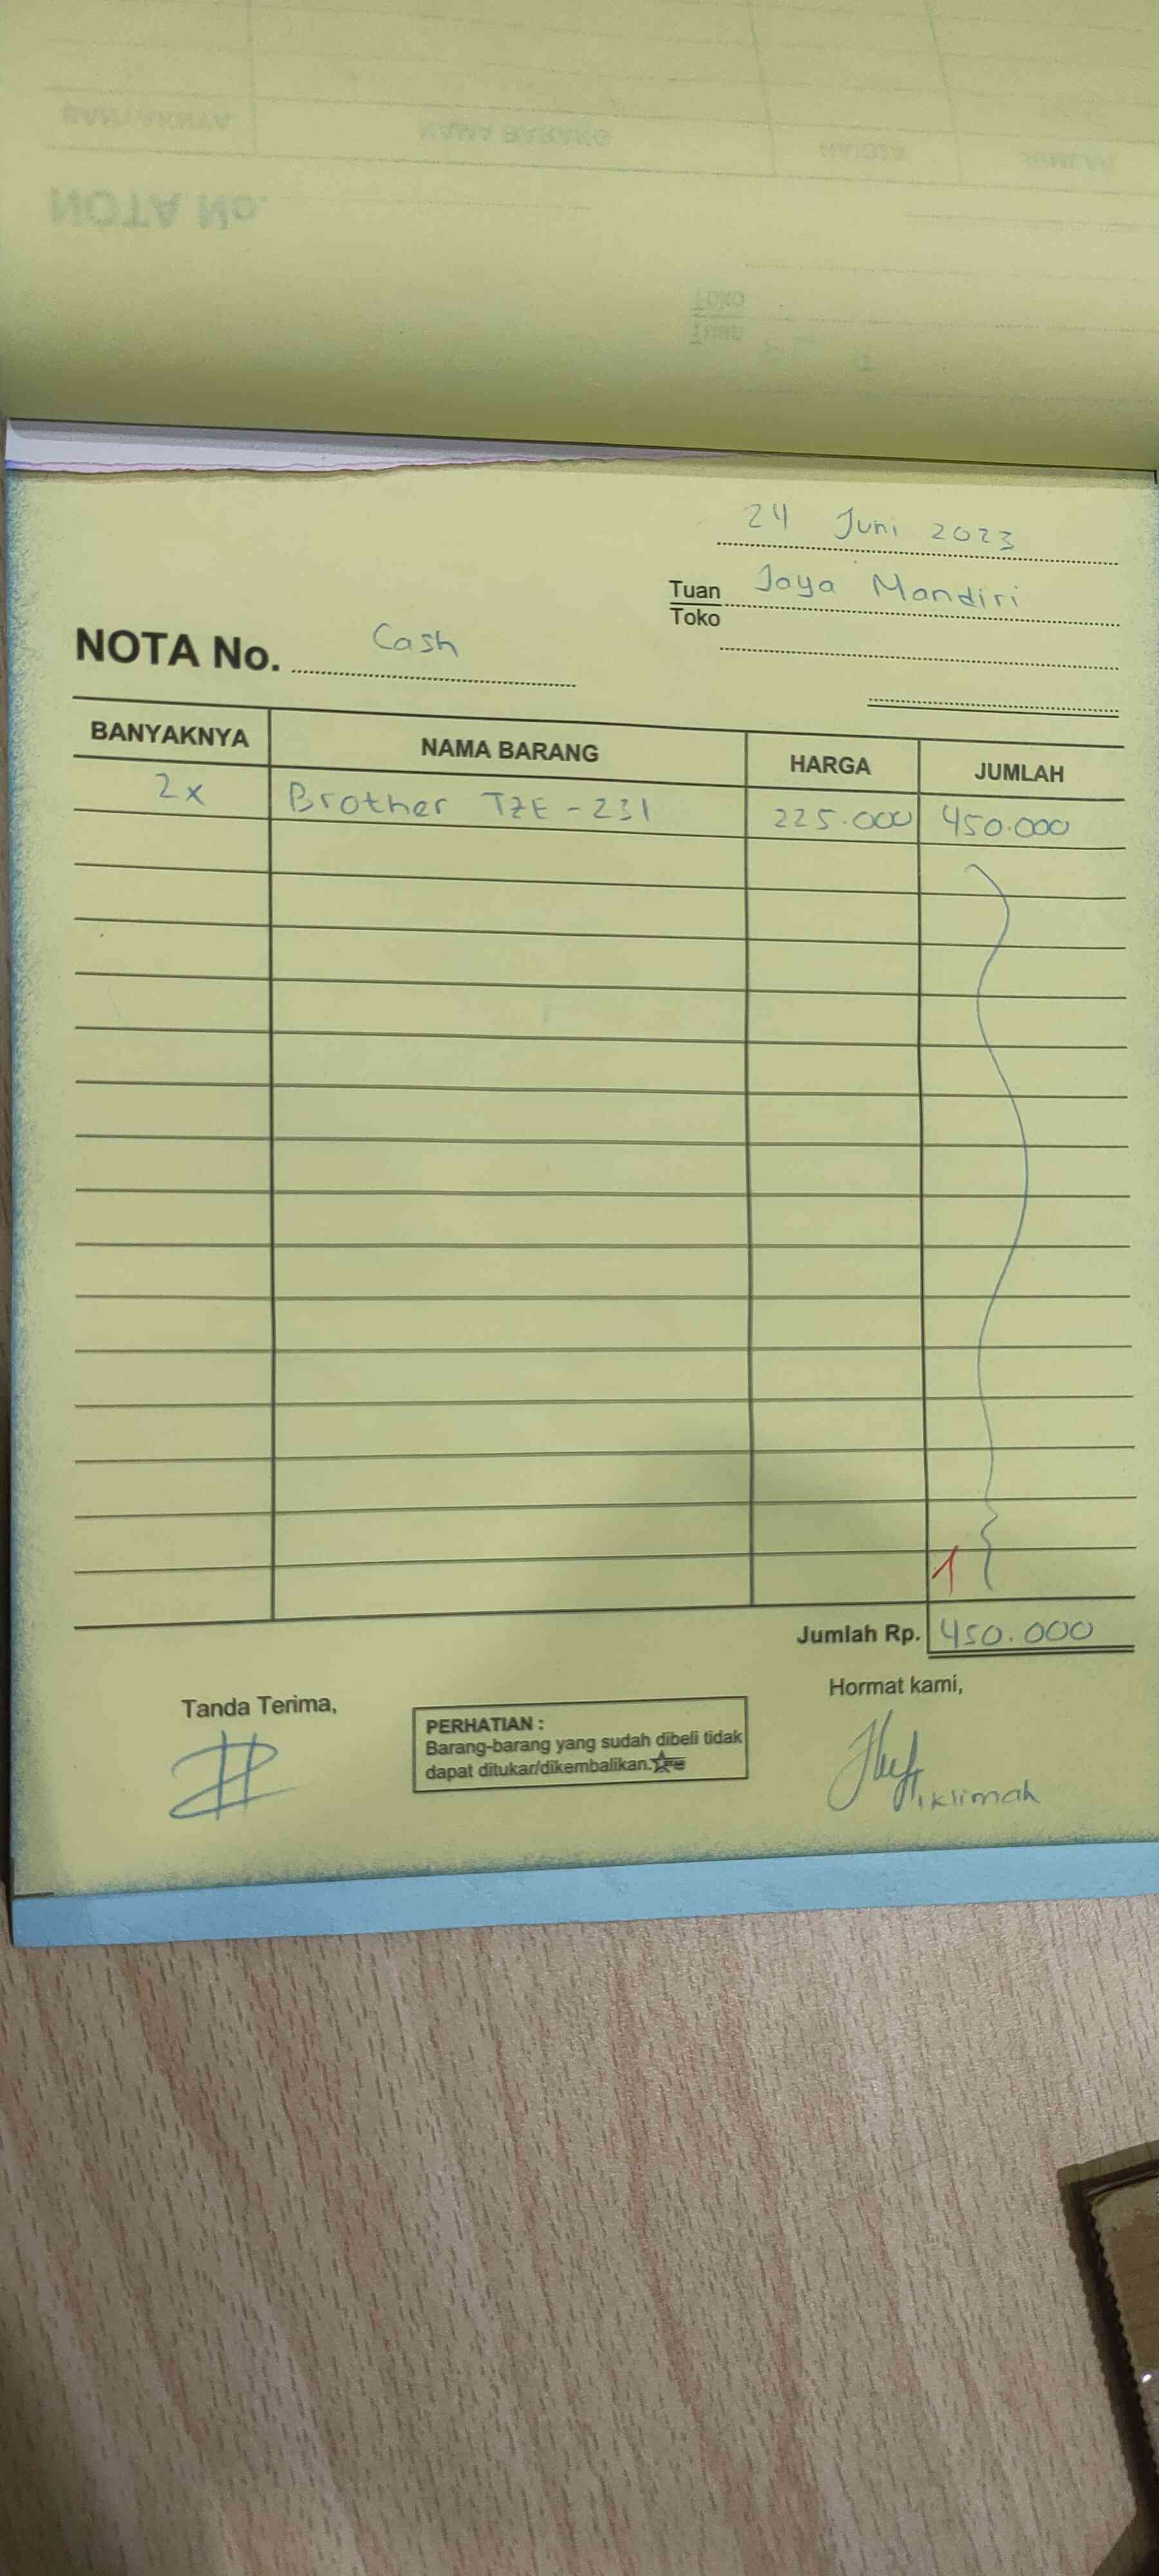 BANYAKNYA NAMA BARANG HARGA JUMLAH
NOTA No.
Toko
Tuan
24 Juni 2023
Tuan Jaya Mandiri
Toko
NOTA No. Cash
BANYAKNYA NAMA BARANG HARGA JUMLAH
2x Brother TZE-231 225.000 450.000
1
Jumlah Rp. 450.000
Tanda Terima,
Hormat kami,
PERHATIAN :
Barang-barang yang sudah dibeli tidak
dapat ditukar/dikembalikan.
iklimah